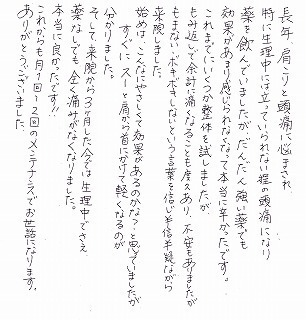 長年、肩こりと頭痛に悩まされ
特に生理中には立っていられない程の頭痛になり
薬を飲んでいましたが、だんだん強い薬でも
効果があまり感じられなくなって本当に辛かったです。
これまでにいくつか整体を試しましたが
もみ返しで余計に痛くなることも度々あり、不安もありましたが
もまない、ボキボキしないという言葉を信じ半信半疑ながら
来院しました。
始めは、こんなにやさしくて効果があるのかな？と思っていましたが
すぐにスーッと肩から首にかけて軽くなるのが
分かりました。
そして来院から3ヶ月した今では生理中でさえ
薬なしでも全く痛みがなくなりました。
本当に良かったです!!
これからも月1回〜2回のメンテナンスでお世話になります。
ありがとうございました。